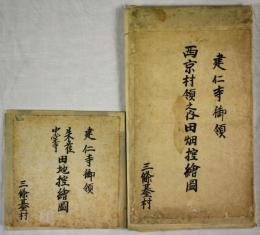 建仁寺御領
西京村領之内田畑控繪圖
三條基村
建仁寺御領
朱雀
中堂寺
田地控繪圖
三條基村